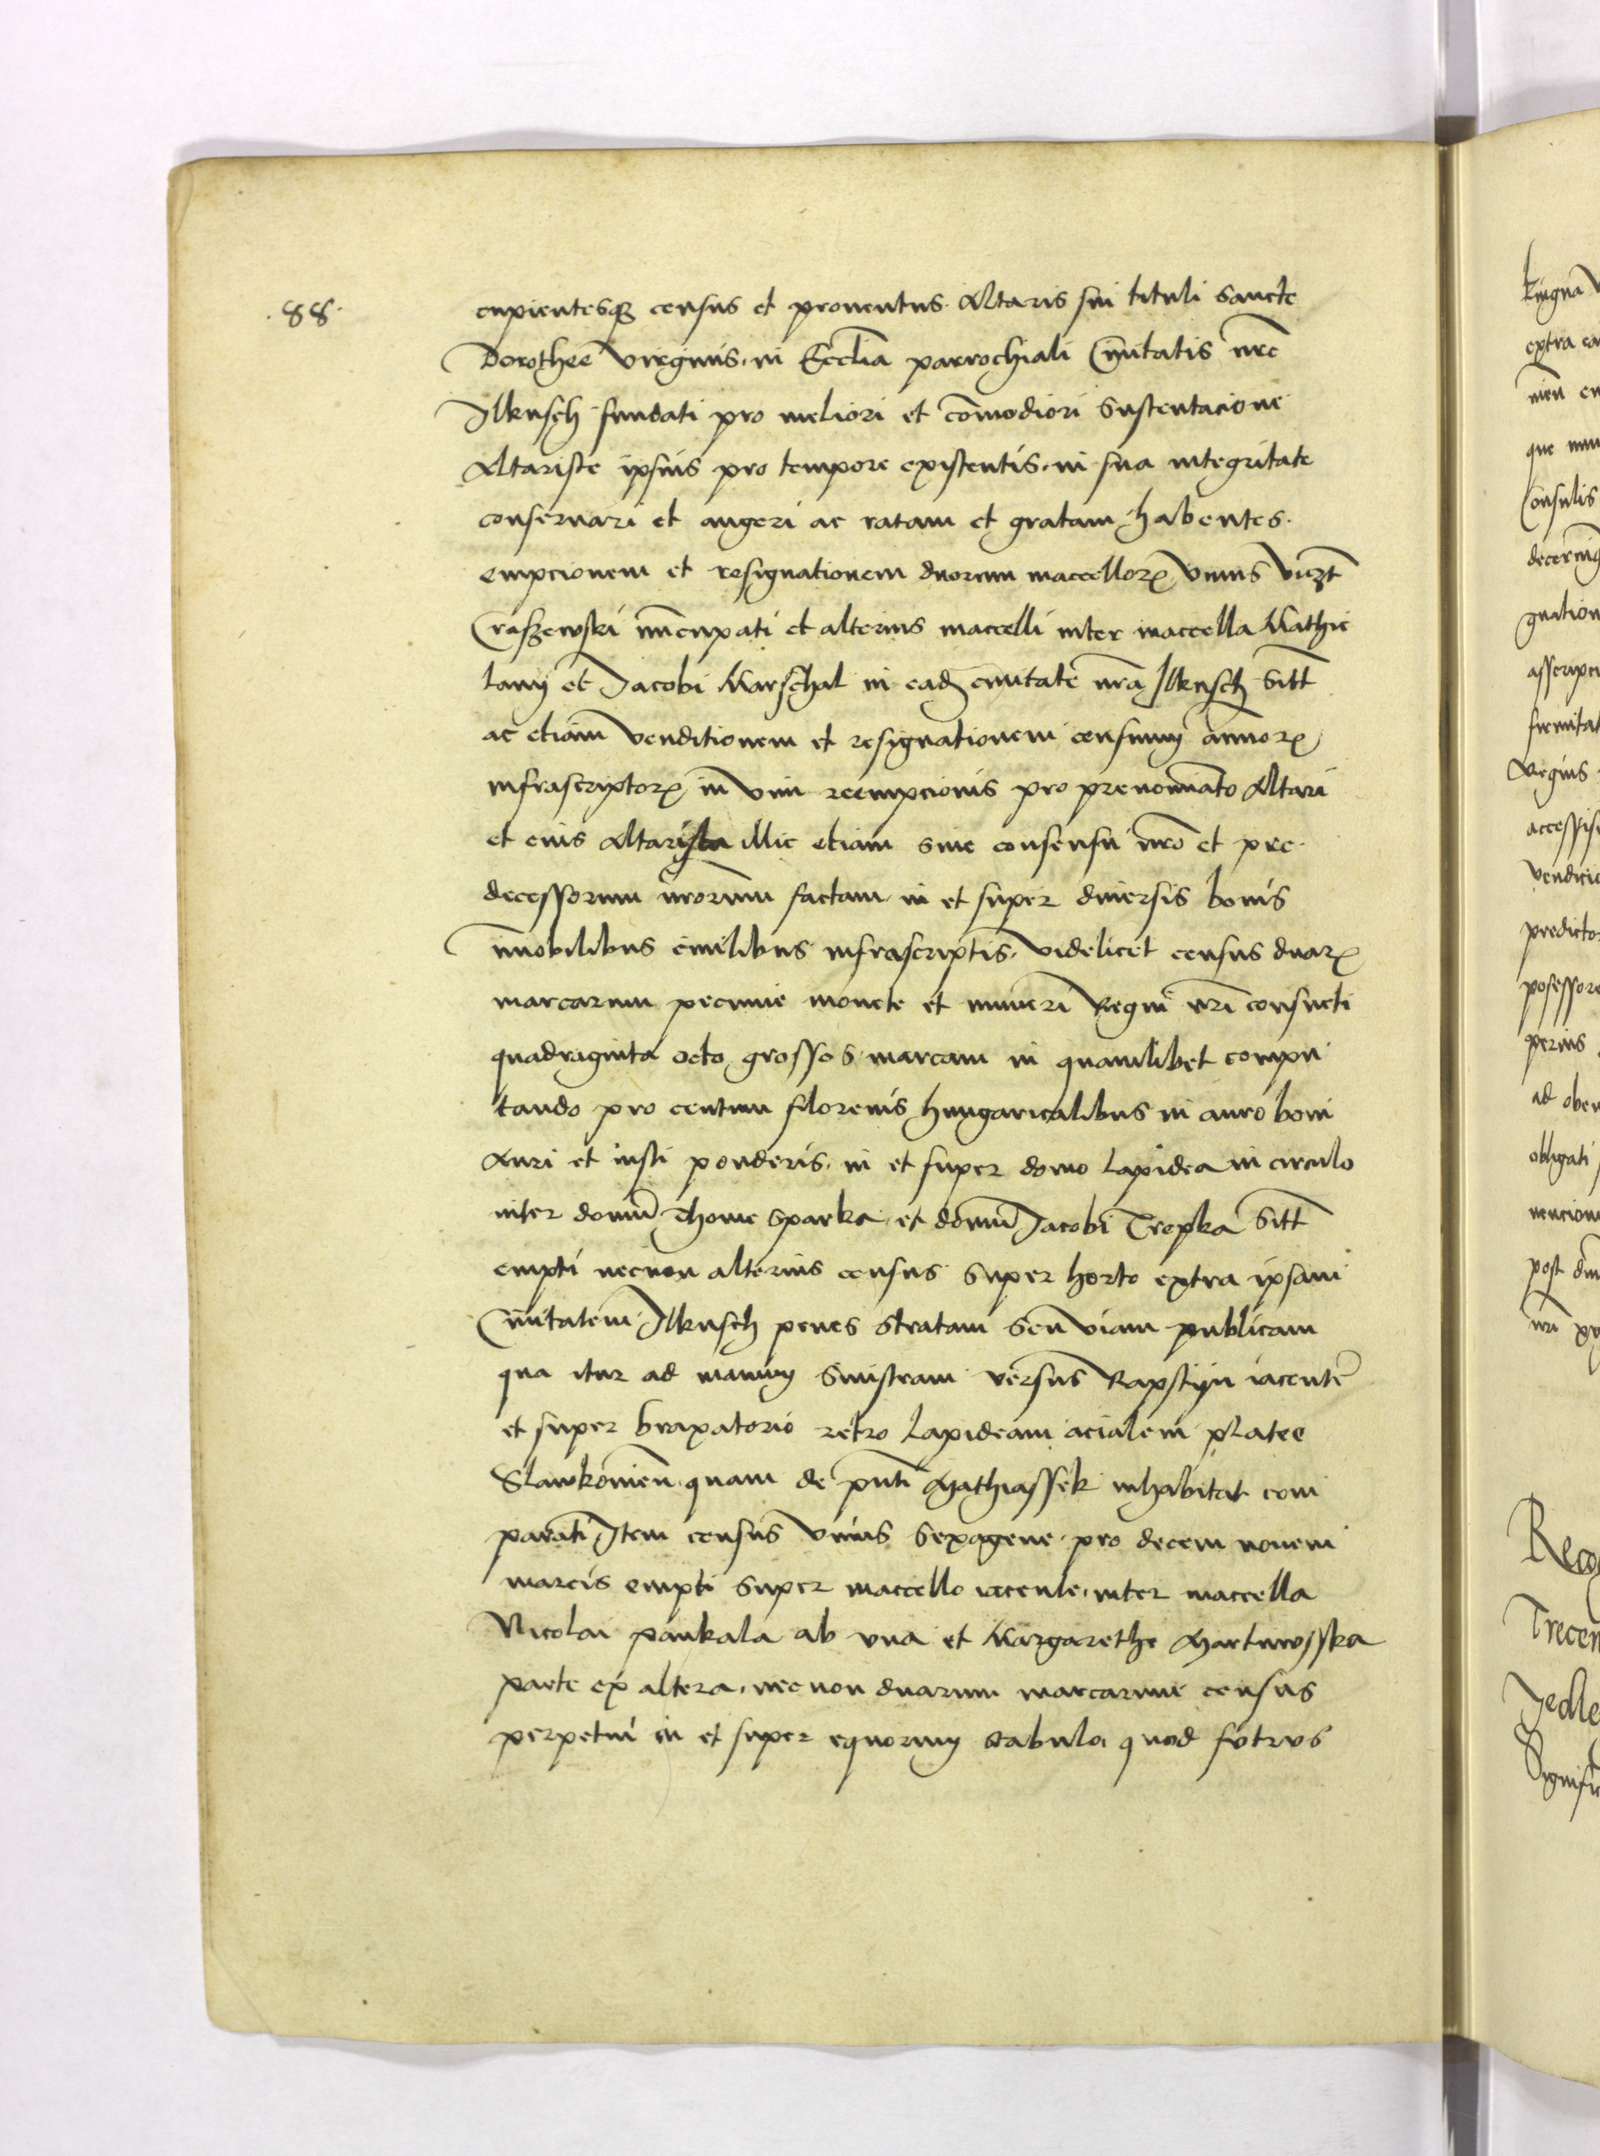 .88.
cupientesq census et proventus Altaris sui tituli Sancte
Dorothee Virginis in Ecclia parrochiali Civitatis nre
Ilkusch fundati pro meliori et comodiori sustentacione
Altariste ipsius pro tempore existentis in sua integritate
conservari et augeri ac ratam et gratam habentes
empcionem et resignationem duorum maccellorz Unius Vizt
nuncupati et alterius maccelli inter maccella Mathie
Lany et Jacobi Marschal in eadz civitate nra Ilkusch sitt
ac etiam Venditionem et resignationem censuum annorz
infrascriptorz in vim reempcionis pro prenominato Altari
et eius Altarista illic etiam sine consensu nro et pre
decessorum nrorum factam in et super diversis bonis
immobilibus civilibus infrascriptis Videlicet census duarz
marcarum pecunie monete et numeri Regni nri consueti
quadraginta octo grossos marcam in quamlibet compu
tando pro centum florenis hungaricalibus in auro boni
Auri et iusti ponderis in et super domo Lapidea in circulo
inter domum Thome Sparka et domum Jacobi Trepka Sitt
empti necnon alterius census super horto extra ipsam
Civitatem Ilkusch penes stratam seu viam publicam
qua itur ad manum sinistram versus Rapstyn iacente
et super braxatorio retro Lapideam acialem platee
Slawkovien quam de pnti Mathiassek inhabitat com
parati Item census Unius sexagene pro decem novem
marcis empti super maccello iacente inter maccella
Nicolai Paukala ab una et Margarethe
parte ex altera necnon duarum marcarum census
perpetui in et super equorum stabulo quod